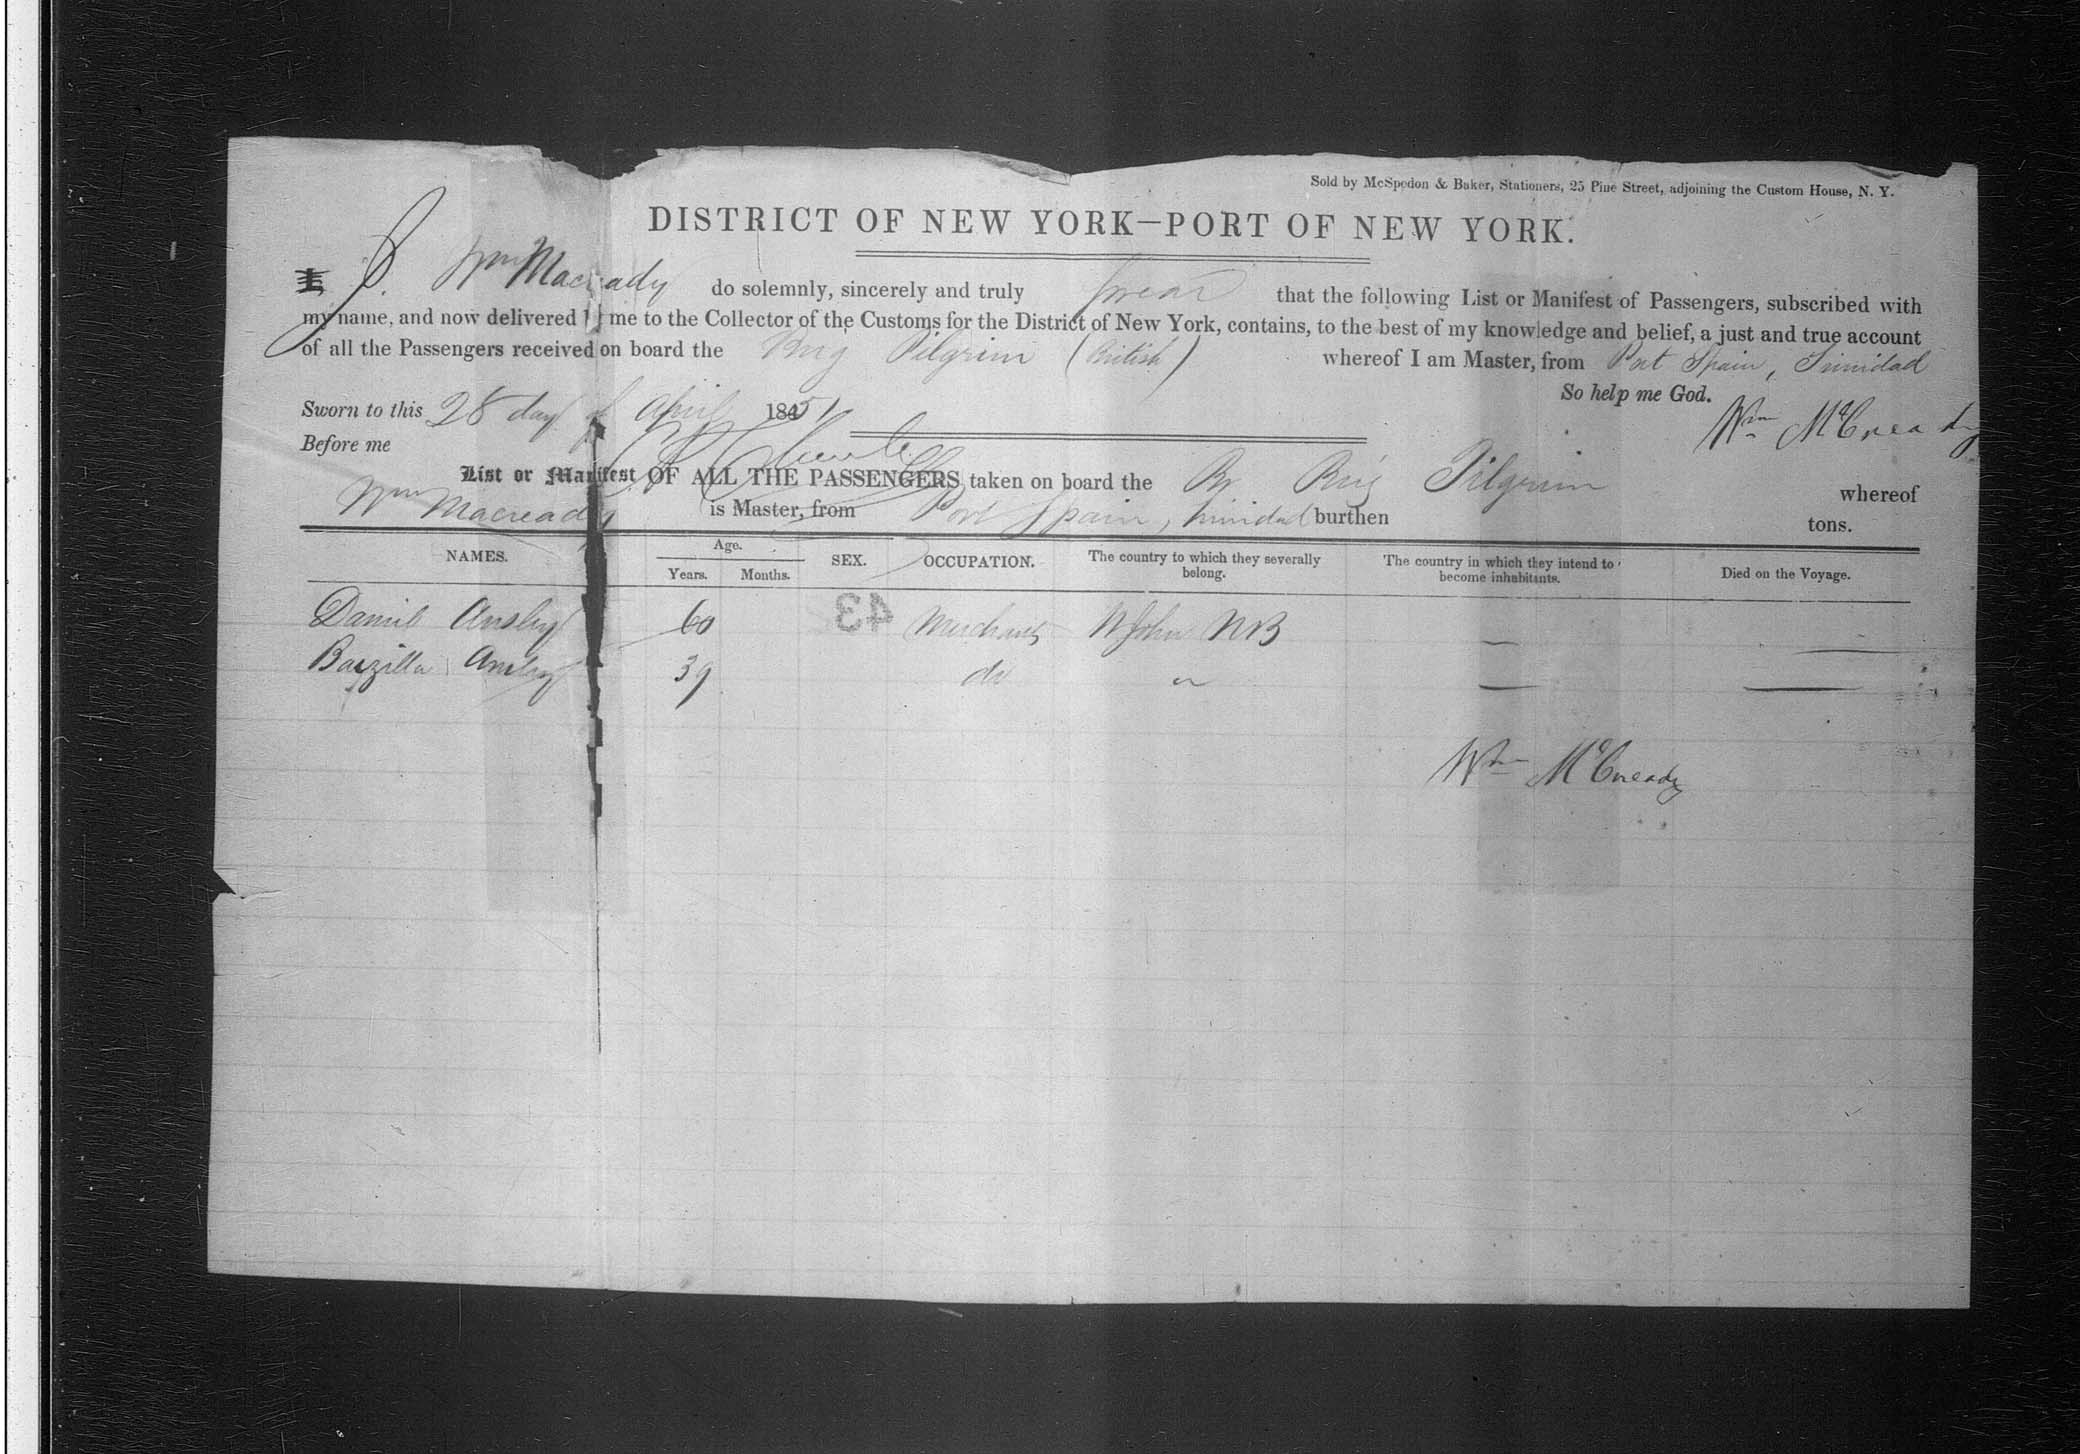 Sold by McSpedon & Baker, Stationers, 25 Pine Street, adjoining the Custom House, N. Y.
DISTRICT OF NEW YORK—PORT OF NEW YORK.
I, Wm Macready do solemnly, sincerely and truly swear that the following List or Manifest of Passengers, subscribed with
my name, and now delivered by me to the Collector of the Customs for the District of New York, contains, to the best of my knowledge and belief, a just and true account
of all the Passengers received on board the Brig Pilgrim (British) whereof I am Master, from Port Spain, Trinidad
So help me God.
Sworn to this 28 day of April 1851
Wm McCready
Before me
List or Manifest OF ALL THE PASSENGERS taken on board the Br Brig Pilgrim whereof
Wm Macready is Master, from Port Spain, Trinidad burthen tons.
NAMES. Age. Years. Months. SEX. OCCUPATION. The country to which they severally belong. The country in which they intend to become inhabitants. Died on the Voyage.
Daniel Ansley 60 Merchant St John NB — —
Barzilla Ansley 39 do " — —
43
Wm McCready